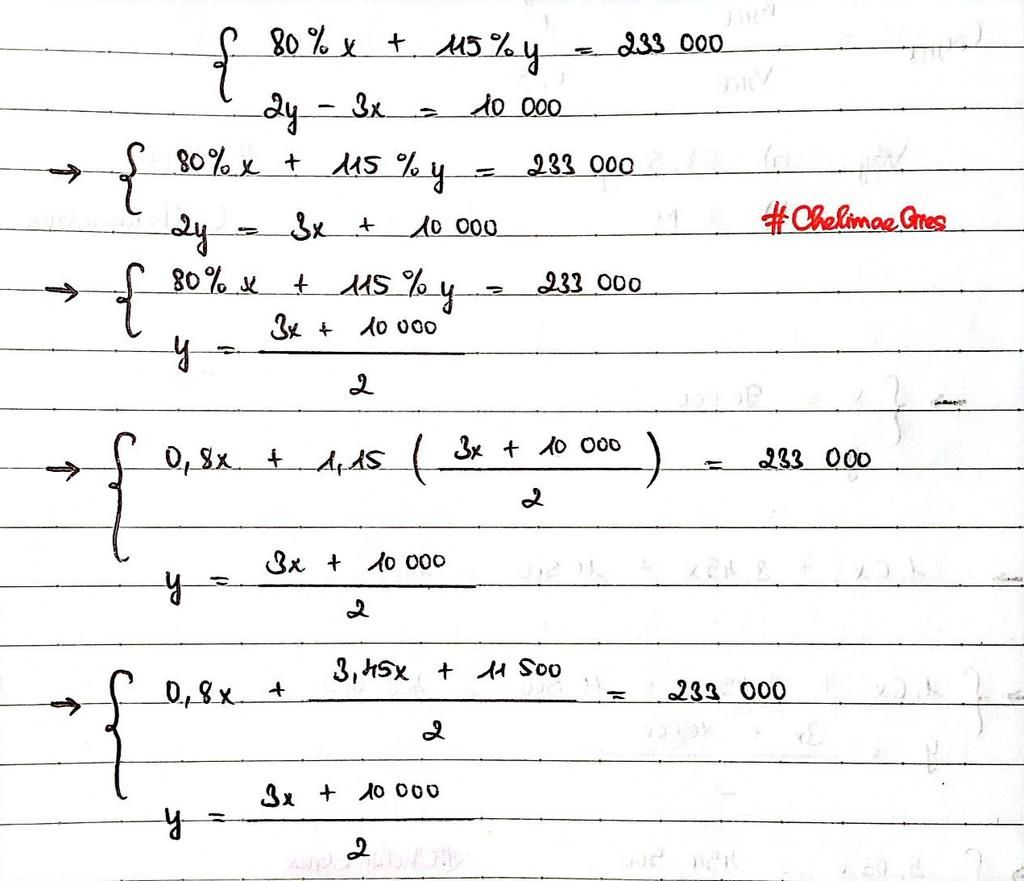 { 80% x + 115% y = 233 000
2y - 3x = 10 000
→ { 80% x + 115 % y = 233 000
2y = 3x + 10 000
#ChelimaeOnes
→ { 80% x + 115 % y = 233 000
y = (3x + 10 000) / 2
→ { 0,8x + 1,15 ( (3x + 10 000) / 2 ) = 233 000
y = (3x + 10 000) / 2
→ { 0,8x + (3,45x + 11 500) / 2 = 233 000
y = (3x + 10 000) / 2